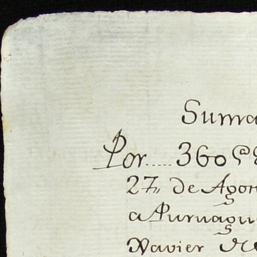 Suma
Por..... 360 p
27,, de Agos
a Puruagu
Xavier